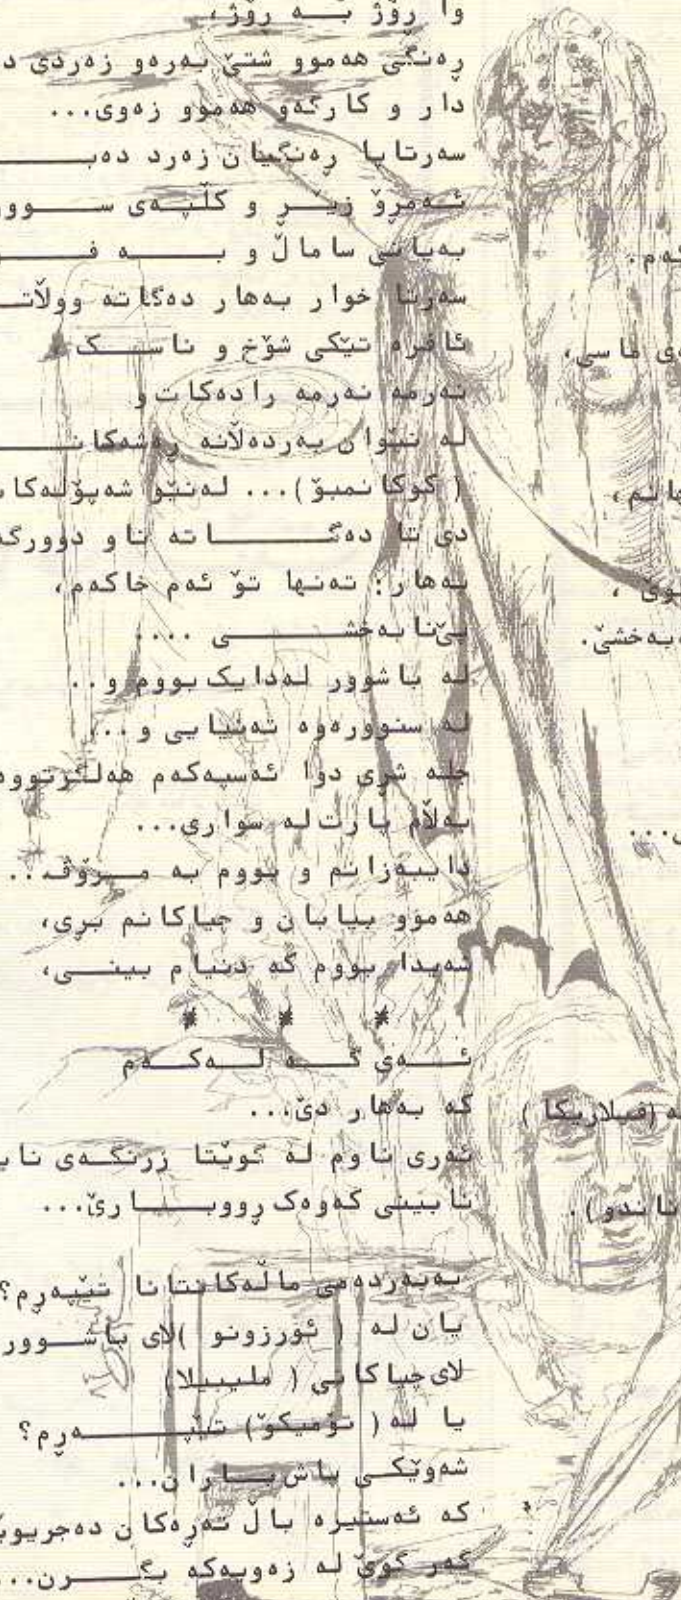 وا ڕۆژ بــە ڕۆژ،
ڕەنگی هەموو شتێ بەرەو زەردی د
دار و کارگەو هەموو زەوی...
سەرتاپا ڕەنگیان زەرد دەبـــــ
ئـەمڕۆ زێـر و کڵپـەی ســـوور
بەیانی ساماڵ و بـــــە فـــ
سەرتا خوار بەهار دەگاتە ووڵاتـ
ئافرەتێکی شۆخ و ناســـک
نەرمە نەرمە رادەکات و
لە نێوان بەردەڵانە ڕەشەکانـــــ
(کوکانمبۆ)... لەنێو شەپۆلەکا
دی تا دەگـــــاتە ناو دوورگە
بەهار: تەنها تۆ ئەم خاکەم،
پێنابەخشــــــی ....
لە باشوور لەدایک بووم و..
لە سنوورەوە تەنیایی و...
جلە شڕی دوا ئەسپەکەم هەلگرتووە
بەڵام پارت لە سواری...
دایبەزانم و بووم بە مـــرۆڤ...
هەموو بیابان و چیاکانم بڕی،
شەیدا بووم کە دنیام بینــی،
* * *
ئـــەی گـــە لـــەکـــەم
کە بەهار دێ...
ئەری ناوم لە گوێتا زرنگـەی نایـ
نابینی کەوەک ڕووبــــارێ...
بەبەردەمی ماڵەکانتانا تێپەڕم؟
یان لە ( ئورزونو )لای باشــوور
لای چیاکانی ( ملیبیلا)
یا لە( تۆمیکۆ) تێپـــــــەڕم؟
شەوێکـی پاش بــاران...
کە ئەستێرە باڵ تەڕەکان دەجریوێ
گەر گوێ لە زەویەکە بگــــرن...
ـەم.
ی ماسی،
هانم،
نوێ ،
ـەبەخشێ.
ی...
ـە (فیلاریکا )
ناندو).